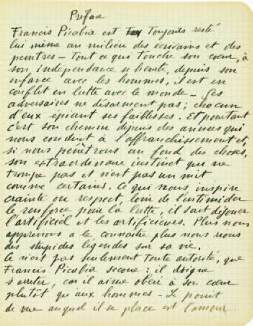 Préface
Francis Picabia est toujours resté
lui même au milieu des courants et des
peintres – Tout ce qui touche son cœur, à
son indépendance se heurte, depuis son
enfance avec les hommes, il est en
conflit en lutte avec le monde – Ses
adversaires ne désarment pas ; chacun
d'eux épiant ses faiblesses. Et pourtant
c'est son chemin depuis des années qui
nous conduit à l'affranchissement et,
si nous pénétrons au fond des choses,
son extraordinaire instinct que ne
trompe pas et n'est pas un mit
comme certains. Ce qui nous inspire
crainte ou respect, loin de l'intimider
le renforce pour la lutte, il sait déjouer
l'artificiel et les artificieux. Plus nous
apprenons à le connaître plus nous rions
des stupides légendes sur sa vie.
Ce n'est pas seulement toute autorité, que
Francis Picabia secoue : il daigne
s'arrêter, car il aime obéir à son cœur
plutôt qu'aux hommes – Le point
de vue auquel il se place est l'amour